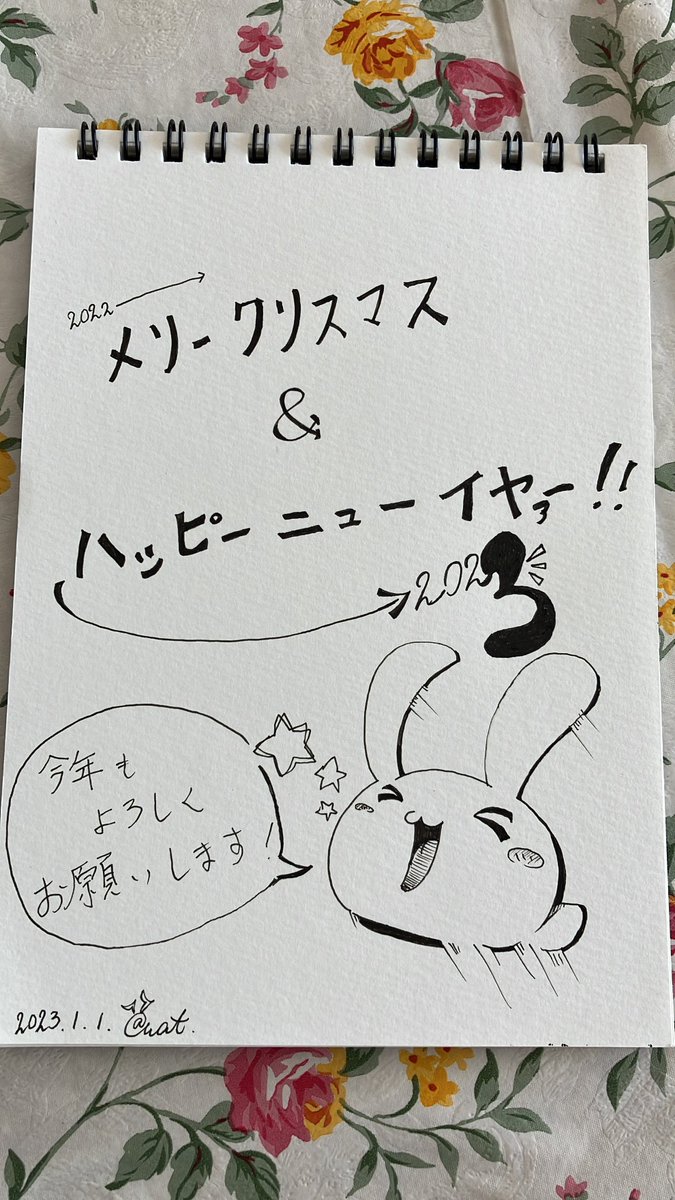 2022
メリークリスマス
&
ハッピーニューイヤァー!!
2023
今年も
よろしく
お願いします!
2023.1.1. @nat.